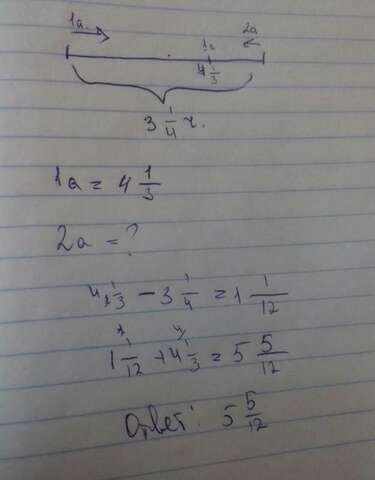 1а. 2а
1а
4 1/3
3 1/4 ч.
1а = 4 1/3
2а = ?
4 1/3 - 3 1/4 = 1 1/12
1 1/12 + 4 1/3 = 5 5/12
Ответ: 5 5/12